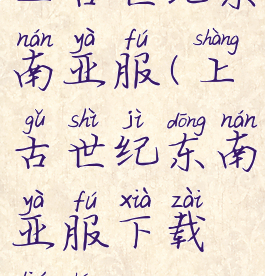 nán yà fú shàng
南亚服(上
gǔ shì jì dōng nán
古世纪东南
yà fú xià zài
亚服下载